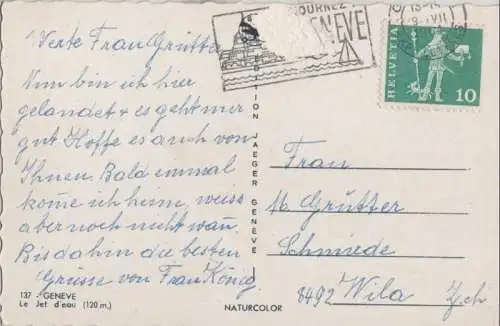 SÉJOURNEZ
GENÈVE
HELVETIA
10
Werte Frau Grütter
Nun bin ich hier
gelandet + es geht mir
gut. Hoffe es auch von
Ihnen. Bald einmal
kom̅e ich heim, weiss
aber noch nicht wan̅.
Bis dahin die besten
Grüsse von Frau König.
EDITION JAEGER GENÈVE
Frau
M. Grütter
Schmiede
8492 Wila Zch
137 - GENÈVE
Le Jet d'eau (120 m.)
NATURCOLOR